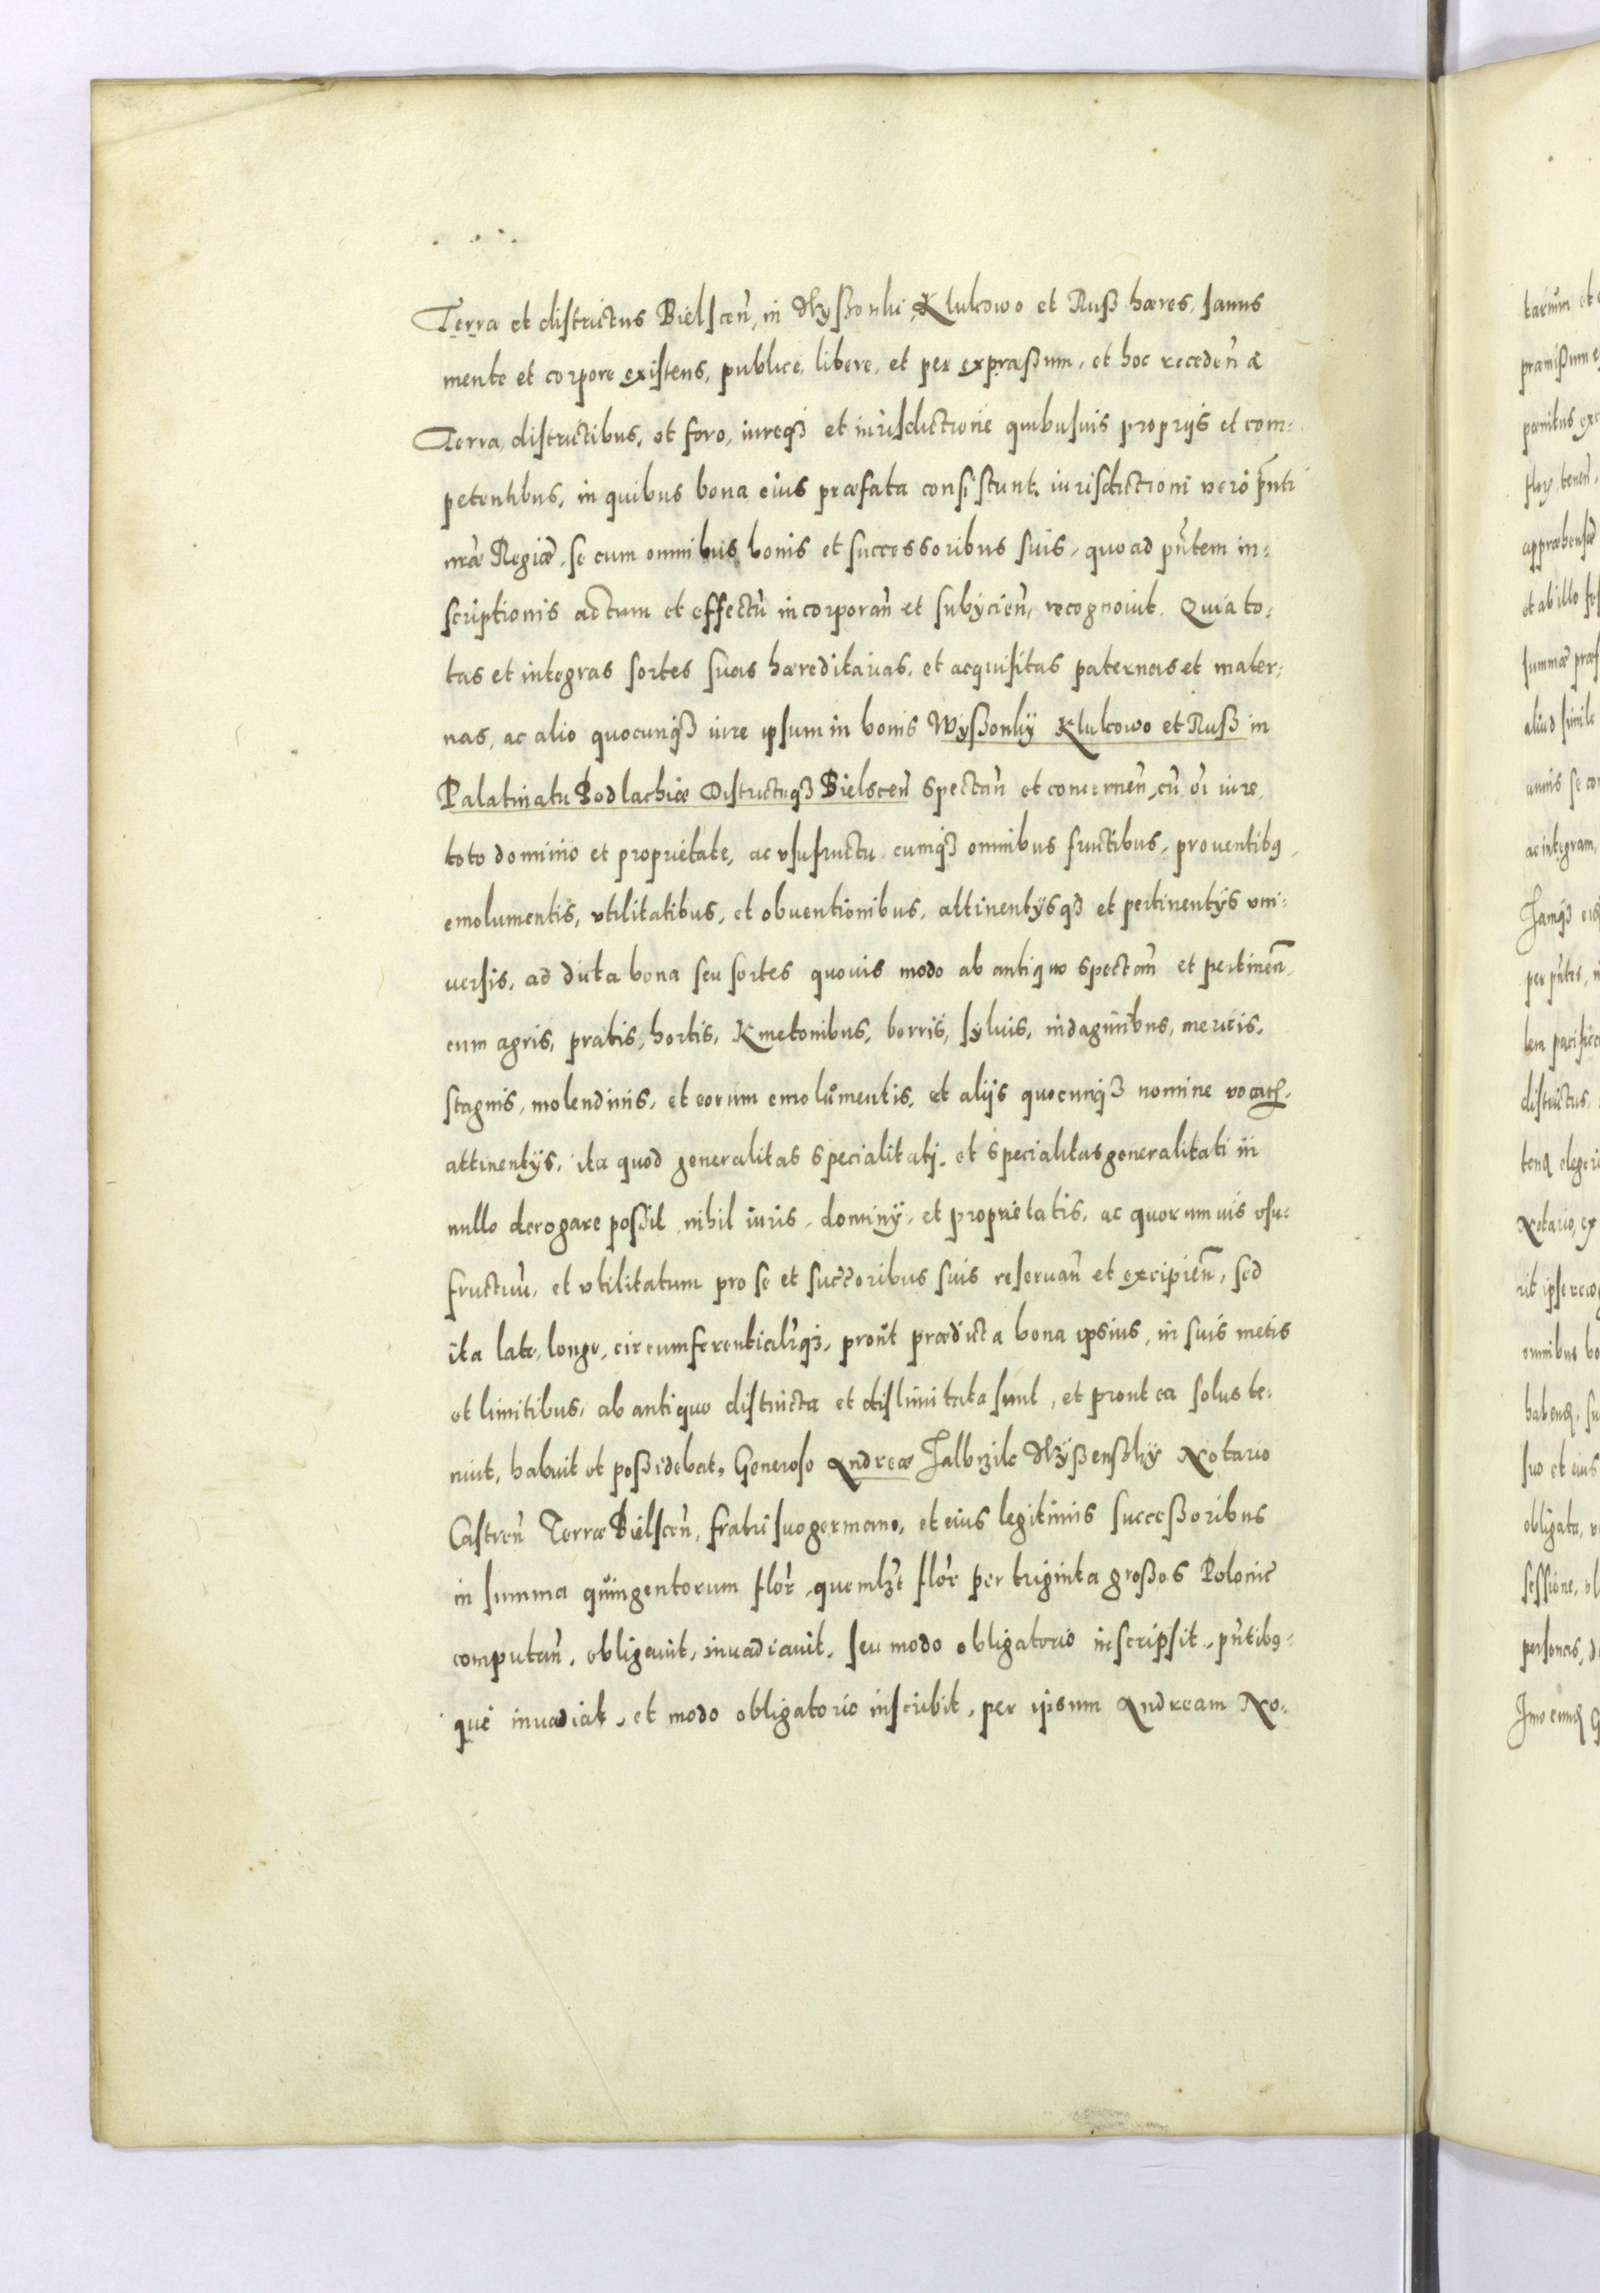 Terra et districtus Bielscen̄, in Wyßonki, Klukowo et Ruß hæres, sanus
mente et corpore existens, publice, libere, et per expræßum, et hoc receden̄ a
Terra, districtibus, et foro, iureqʒ et iurisdictione quibusuis proprijs et com-
petentibus, in quibus bona eius præfata consistunt, iurisdictioni vero pn̄ti
nr̄æ Regiæ, se cum omnibus bonis et successoribus suis, quoad pn̄tem in-
scriptionis actum et effectū incorporan̄ et subijcien̄, recognouit. Quia to-
tas et integras sortes suas hæreditarias, et acquisitas paternas et mater-
nas, ac alio quocunqʒ iure ipsum in bonis Wyßonky Klukowo et Ruß in
Palatinatu Podlachiæ Districtuqʒ Bielscen̄ spectan̄ et concernen̄, cū oī iure
toto dominio et proprietate, ac vsufructu cumqʒ omnibus fructibus, prouentibꝰ,
emolumentis, vtilitatibus, et obuentionibus, attinentijsqʒ et pertinentijs vni-
uersis, ad dicta bona seu sortes quouis modo ab antiquo spectan̄ et pertinen̄,
cum agris, pratis, hortis, Kmetonibus, borris, syluis, indaginibus, mericis,
stagnis, molendinis, et eorum emolumentis, et alijs quocunqʒ nomine vocatis,
attinentijs, ita quod generalitas specialitati, et specialitas generalitati in
nullo derogare poßit nihil iuris, dominij, et proprietatis, ac quorumuis vsu-
fructuū, et vtilitatum pro se et succ̄oribus suis reseruan̄ et excipien̄, sed
ita late, longe, circumferentialr̄qʒ, prout prædicta bona ipsius, in suis metis
et limitibus, ab antiquo distincta et dislimitata sunt, et prout ea solus te-
nuit, habuit et poßidebat, Generoso Andreæ Jalbrzik Wyßenßky Notario
Castren̄ Terræ Bielscen̄, fratri suo germano, et eius legitimis succeßoribus
in summa quingentorum flor̄, quemlʒt flor̄ per triginta großos Polonic̄
computan̄, obligauit, inuadiauit, seu modo obligatorio inscripsit, pn̄tibꝰ-
que inuadiat, et modo obligatorio inscribit, per ipsum Andream No-